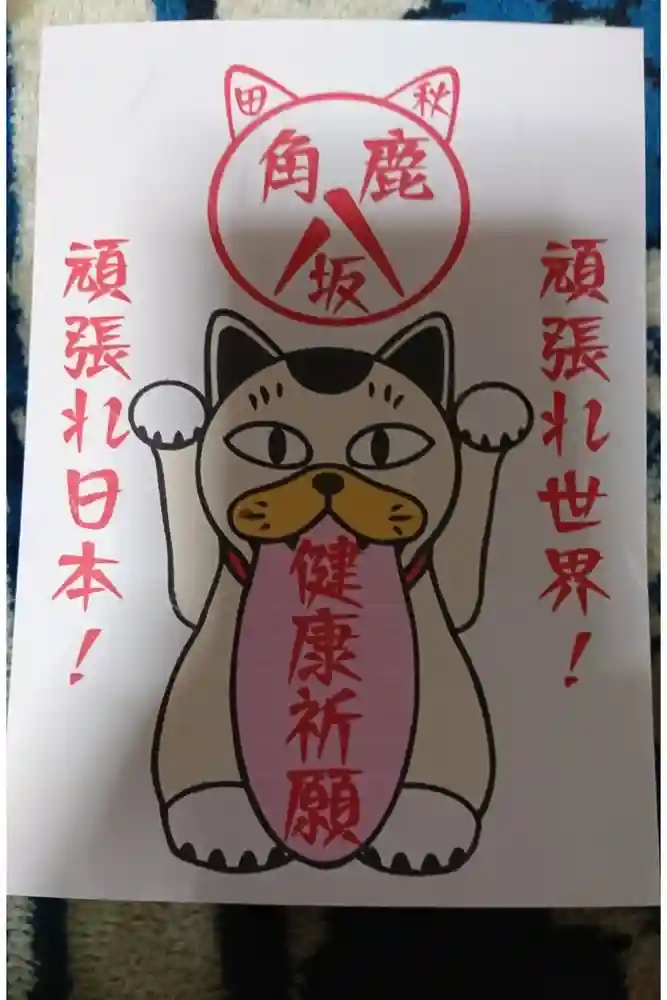 秋田
鹿角
八坂
頑張れ世界!
健康祈願
頑張れ日本!